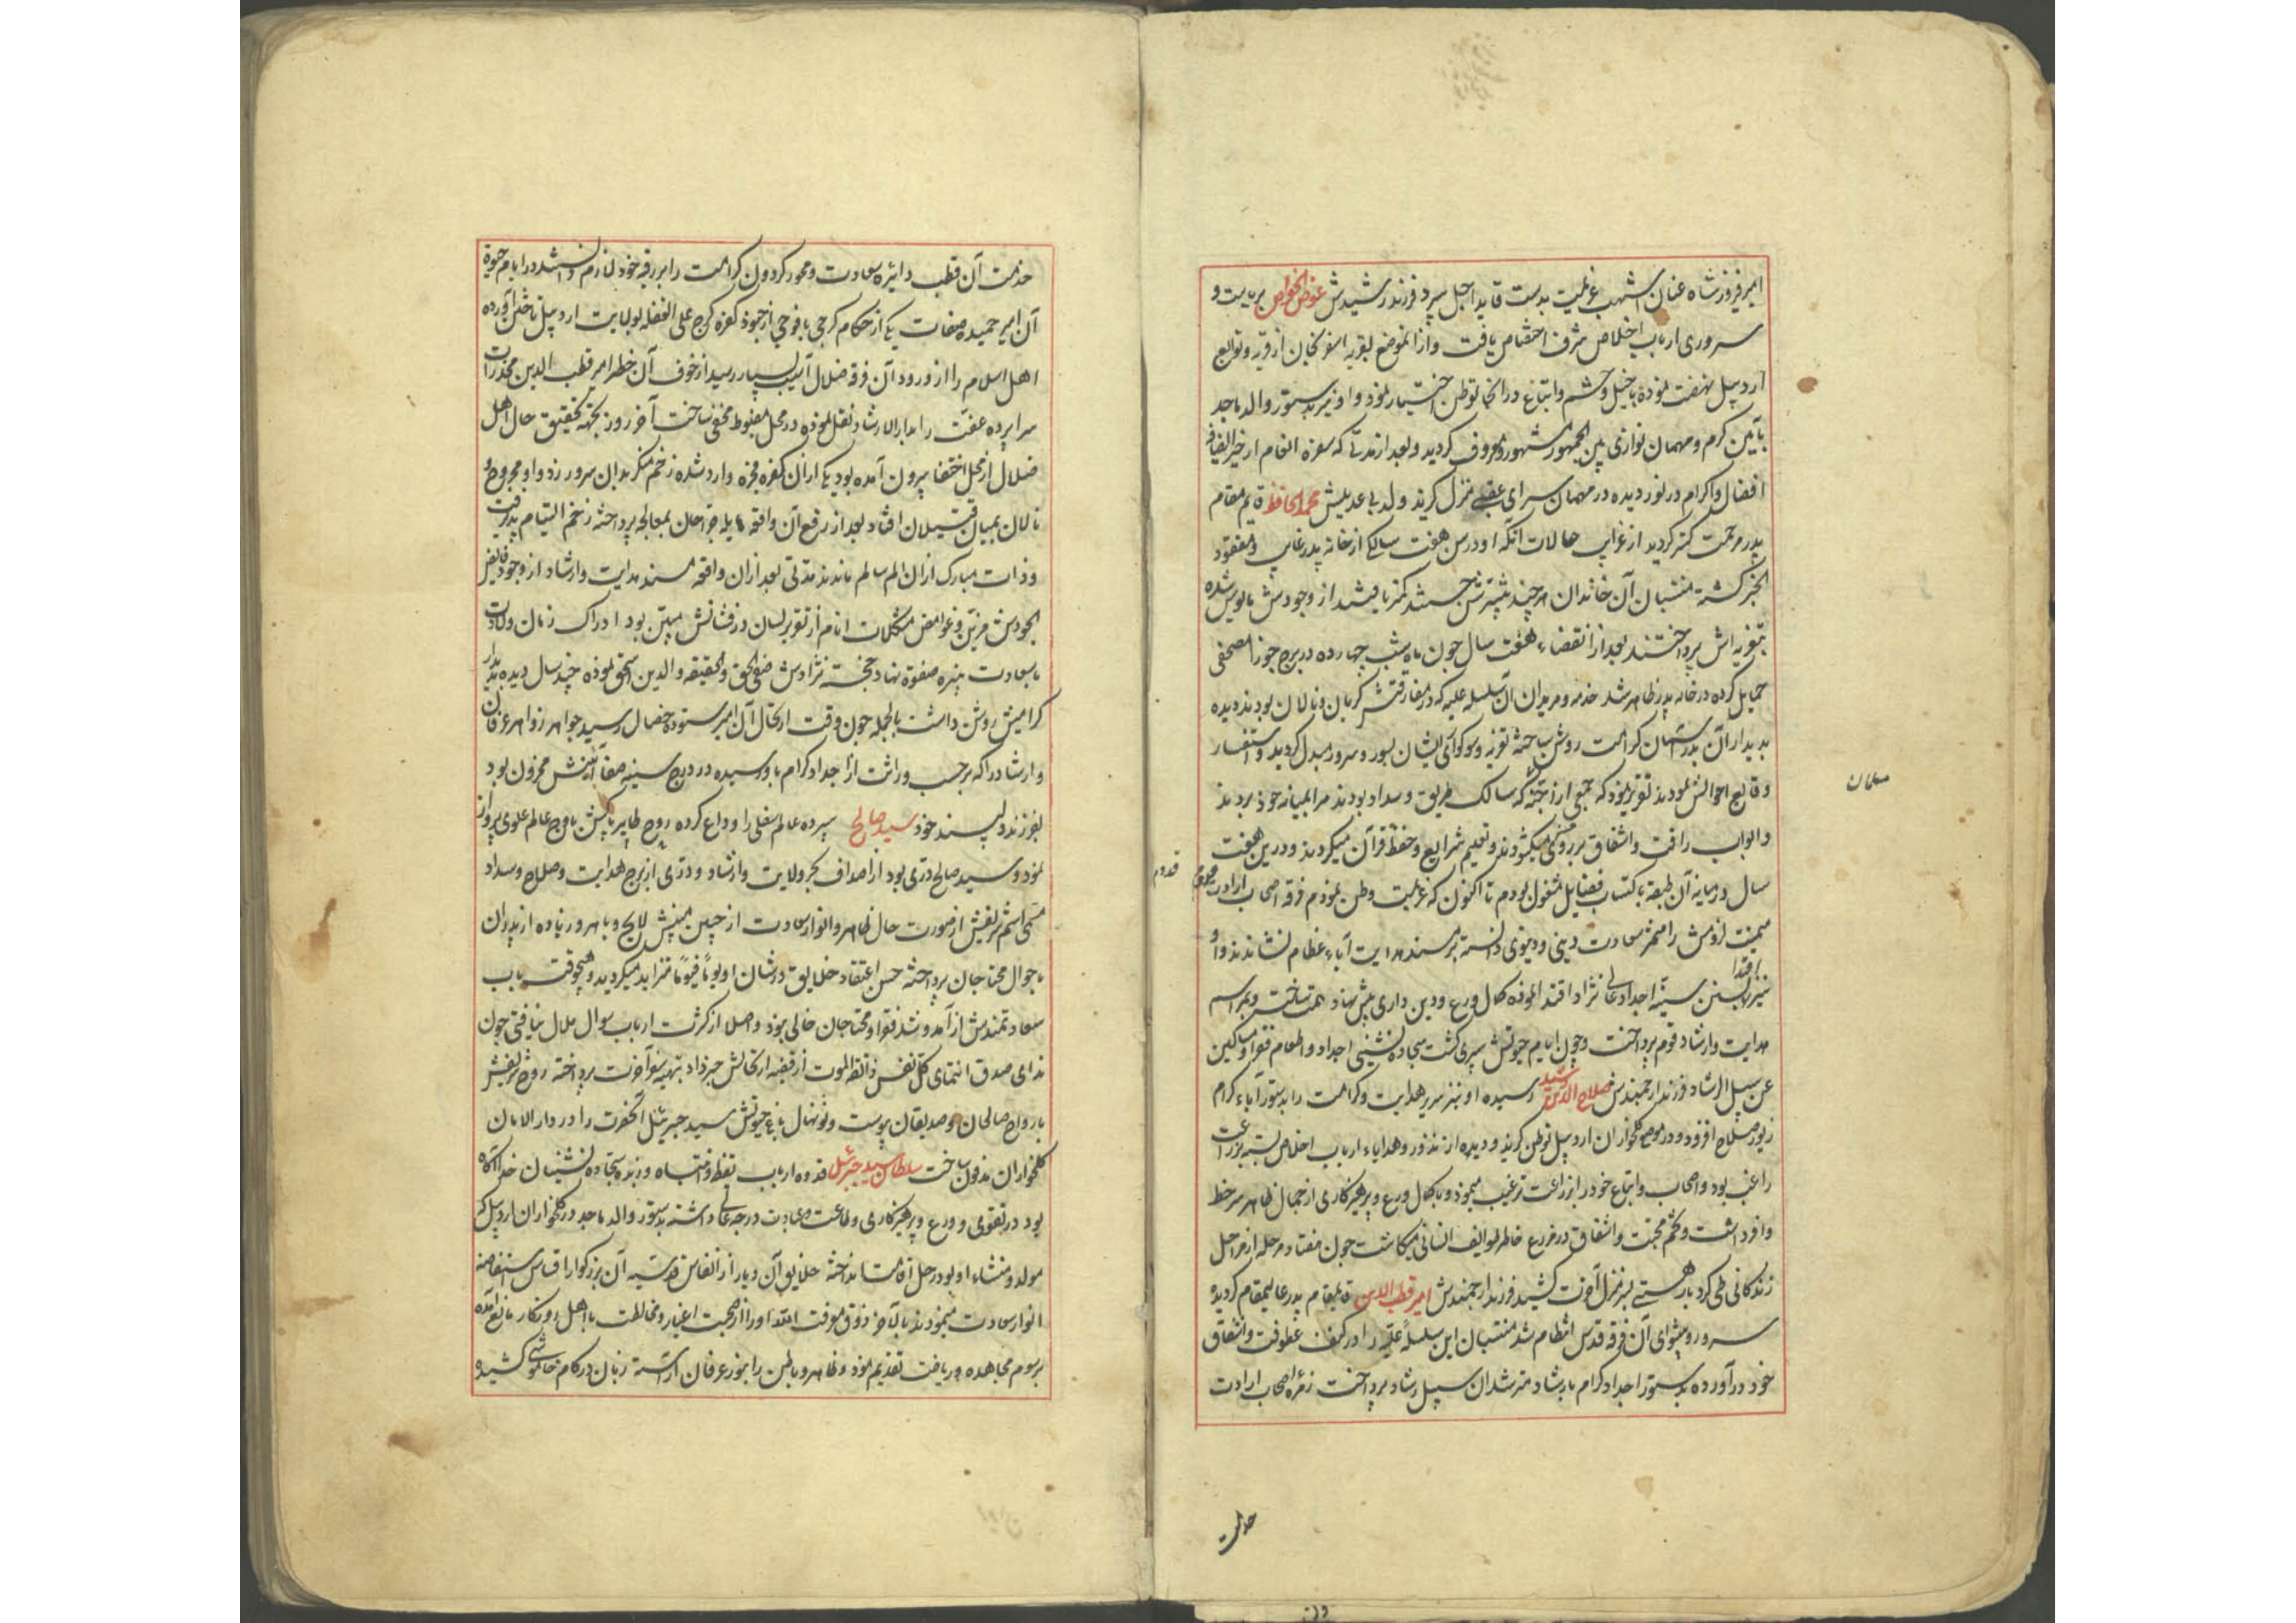 امیر فیروز شاه عنان اشهب عزیمت بدست قاید اجل سپرد فرزند رشیدش عوض الخواص بریاست و
سروری ارباب اخلاص شرف اختصاص یافت و از انموضع بقریه اسفرنجان از قریه و توابع
اردبیل نهضت نموده با خیل و حشم و اتباع در انجا توطن اختیار نمود و او نیز بدستور والد ماجد
بآئین کرم و مهمان نوازی بین الجمهور مشهور و معروف کردید و بعد از مدتی که سفره انعام از خیر الضیافه
افضال و اکرام در نور دیده در مهمان سرای عقبی منزل کزید ولد بی عدیلش محمد الحافظ قایم مقام
پدر مرحمت کستر کردید از غرایب حالات انکه او در سن هفت سالکی از خانه پدر غایب و مفقود
الخبر کشته منتسبان آن خاندان هر چند بیشترش جستند کمتر یافتند از وجودش مایوس شده
بتعزیه اش پرداختند بعد از انقضاء هفت سال چون ماه شب چهارده در برج جوزا مصحفی
حمایل کرده در خانه پدر ظاهر شد خدمه و مریدان آن سلسله علیه که در مفارقتش کریان و نالان بودند دیده
بدیدار آن بدر آسمان کرامت روشن ساخته تعزیه و سوکواری ایشان بسور و سرور مبدل کردید و استفسار
وقایع احوالش نمودند تقریر نمود که جمعی از اجنه که سالک طریق و سداد بودند مرا بمیانه خود بردند
و ابواب رافت و اشفاق بر روی من میکشودند و تعلیم شرایع و حفظ قرآن میکردند و درین هفت
سال در میانه آن طبقه باکتساب فضایل مشغول بودم تا اکنون که عزیمت وطن نمودم فرقه اصحاب ارادت
میمنت لزومش را مثمر سعادت دینی و دنیوی دانسته بر مسند هدایت آباء عظام نشاندند و او
نیز بسنن سنیه اجداد عالی نژاد اقتدا نموده کمال ورع و دین داری پیش نهاد همت ساخت و بمراسم
هدایت و ارشاد قوم پرداخت و چون ایام حیوتش سپری کشت سجاده نشینی اجداد و اطعام فقرا و مساکین
عن سبیل الرشاد فرزند ارجمندش صلاح الدین رشید رسیده او نیز سریر هدایت و کرامت را بدستور آباء کرام
زیور صلاح افزوده در موضع کلخواران اردبیل توطن کزید و دیده از نذور و هدایاء ارباب اخلاص بسته بزراعت
راغب بود و اصحاب و اتباع خود را بزراعت ترغیب مینمود و با کمال ورع و پرهیزکاری از جمال ظاهر سر خط
وافر داشت و تخم محبت و اشفاق در مزرع خاطر طوایف انسانی میکاشت چون هفتاد مرحله از مراحل
زندکانی طی کرد بار هستی بسر منزل آخرت کشید فرزند ارجمندش امیر قطب الدین قایمقام پدر عالیمقام کردیده
سرور و پیشوای آن فرقه قدس انتظام شد منتسبان این سلسله علیه را در کنف عطوفت و اشفاق
خود درآورده بدستور اجداد کرام بارشاد مسترشدان سبیل رشاد پرداخت زمره اصحاب ارادت
خدمت
مسلمان
قدوم
خدمت آن قطب دایره سعادت و محور کردون کرامت را بر رقبه خود لازم دانستند در ایام حیوة
آن امیر حمیده صفات یکی از حکام کرجی با فوجی از جنود کفره کرج علی الغفله بولایت اردبیل تاختن آورده
اهل اسلام را از ورود آن فرقه ضلال آسیب بسیار رسید از خوف آن خطر امیر قطب الدین مخدرات
سراپرده عفت را بدار الارشاد نقل نموده در محل مضبوط مخفی ساخت آخر روز بجهة تحقیق حال اهل
ضلال از محل اختفا بیرون آمده بود یکی از آن کفره فجره وارد شده زخم منکر بدان سرور زد و او مجروح و
نالان بمیان قتیلان افتاد بعد از رفع آن واقعه هایله جراحان بمعالجه پرداخته زخم التیام پذیرفت
و ذات مبارک از ان الم سالم ماندند مدتی بعد از ان واقعه مسند هدایت و ارشاد از وجود فایض
الجودش مزین و غوامض مشکلات انام از تقریر لسان در فشانش مبین بود ادراک زمان ولادت
با سعادت نبیره صفوة نهاد خجسته نژادش صفی الحق و الحقیقه و الدین اسحق نموده چند سال دیده بدیدار
کرامیش روشن داشت بالجمله چون وقت ارتحال آن امیر ستوده خصال رسید جواهر زواهر عرفان
و ارشاد را که برحسب وراثت از اجداد کرام باو رسیده در درج سینه صفا آئینش مخزون بود
بفرزند دلپسند خود سید صالح سپرده عالم سفلی را وداع کرده روح طایر پاکش باوج عالم علوی پرواز
نمود و سید صالح دری بود از اصداف بحر ولایت و ارشاد و دری از برج هدایت و صلاح و سداد
مسمی اسم شریفش از صورت حال ظاهر و انوار سعادت از جبین مبینش لایح و باهر و زیاده از پدران
باحوال محتاجان پرداخته حسن اعتقاد خلایق در شان او یوما فیوما متزاید میکردید و هیچوقت باب
سعادتمندش از آمد و شد فقرا و محتاجان خالی نبود و اصلا از کثرت ارباب سوال ملال نیافتی چون
ندای صدق انتمای کل نفس ذائقة الموت از قضیه ارتحالش خبر داد بتهیه سفر آخرت پرداخته روح شریفش
بارواح صالحان و صدیقان پیوست و نونهال باغ حیوتش سید جبرئیل آنحضرت را در دار الامان
کلخواران مدفون ساخت سلطان سید جبرئیل قدوه ارباب تیقظ و انتباه و زبده سجاده نشینان خدا آکاه
بود در تقوی و ورع و پرهیزکاری و طاعت و عبادت درجه عالی داشته بدستور والد ماجد در کلخواران اردبیل که
مولد و منشاء او بود رحل اقامت انداخته خلایق آن دیار از انفاس قدسیه آن بزرکوار اقتباس استفاضه
انوار سعادت مینمودند بالآخر ذوق معرفت الله او را از صحبت اغیار و مخالطت با اهل روزکار مانع آمده
برسوم مجاهده و ریاضت تقدیم نمود و ظاهر و باطن را بنور عرفان آراسته زبان در کام خاموشی کشیده